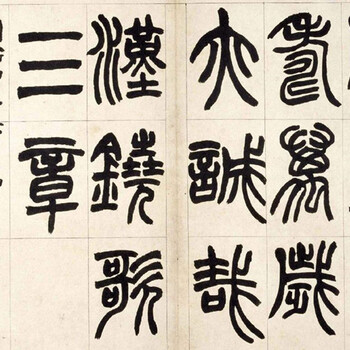 壽萬歲
亦誠哉
漢鐃歌
三章